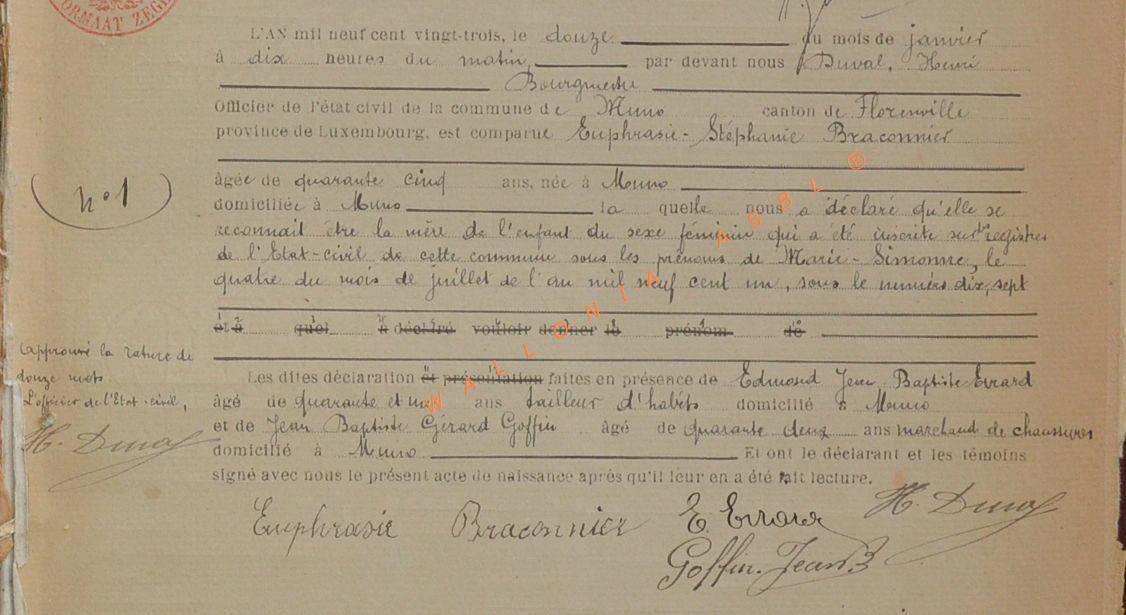 ORMAAT ZEGE
L'AN mil neuf cent vingt-trois, le douze du mois de janvier
à dix heures du matin, par devant nous Duval, Henri
Bourgmestre
Officier de l'état civil de la commune de Muno canton de Florenville
province de Luxembourg, est comparue Euphrasie-Stéphanie Braconnier
âgée de quarante cinq ans, née à Muno
n° 1
domiciliée à Muno la quelle nous a déclaré qu'elle se
reconnait être la mère de l'enfant du sexe féminin qui a été inscrite sur les registres
de l'Etat-civil de cette commune sous les prénoms de Marie-Simonne, le
quatre du mois de juillet de l'an mil neuf cent un, sous le numéro dix-sept
et à quel a déclaré vouloir donner le prénom de
Approuvé la rature de
douze mots
L'officier de l'Etat-civil,
H. Duval
Les dites déclaration et présentation faites en présence de Edmond Jean Baptiste Evrard
âgé de quarante et un ans tailleur d'habits domicilié à Muno
et de Jean Baptiste Gérard Goffin âgé de quarante deux ans marchand de chaussures
domicilié à Muno Et ont le déclarant et les témoins
signé avec nous le présent acte de naissance après qu'il leur en a été fait lecture.
Euphrasie Braconnier E. Evrard H. Duval
Goffin-Jean B
WALLONIA ASBL ®